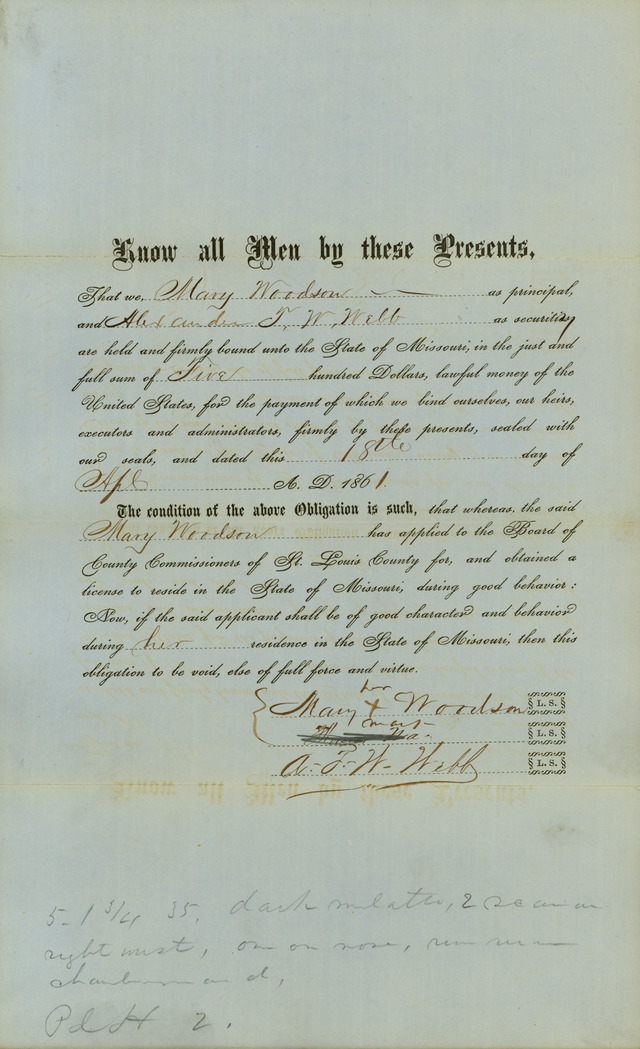 Know all Men by these Presents,
That we, Mary Woodson as principal,
and Alexander T. W. Webb as security
are held and firmly bound unto the State of Missouri, in the just and
full sum of Five hundred Dollars, lawful money of the
United States, for the payment of which we bind ourselves, our heirs,
executors and administrators, firmly by these presents, sealed with
our seals, and dated this 18th day of
Apl A. D. 1861.
The condition of the above Obligation is such, that whereas, the said
Mary Woodson has applied to the Board of
County Commissioners of St. Louis County for, and obtained a
license to reside in the State of Missouri, during good behavior:
Now, if the said applicant shall be of good character and behavior
during her residence in the State of Missouri, then this
obligation to be void, else of full force and virtue.
her
Mary X Woodson § L. S. §
mark
§ L. S. §
A. T. W. Webb § L. S. §
5-1 3/4 35, dark mulatto, 2 scar on
right wrist, one on nose,
chambermaid,
Pd H 2.